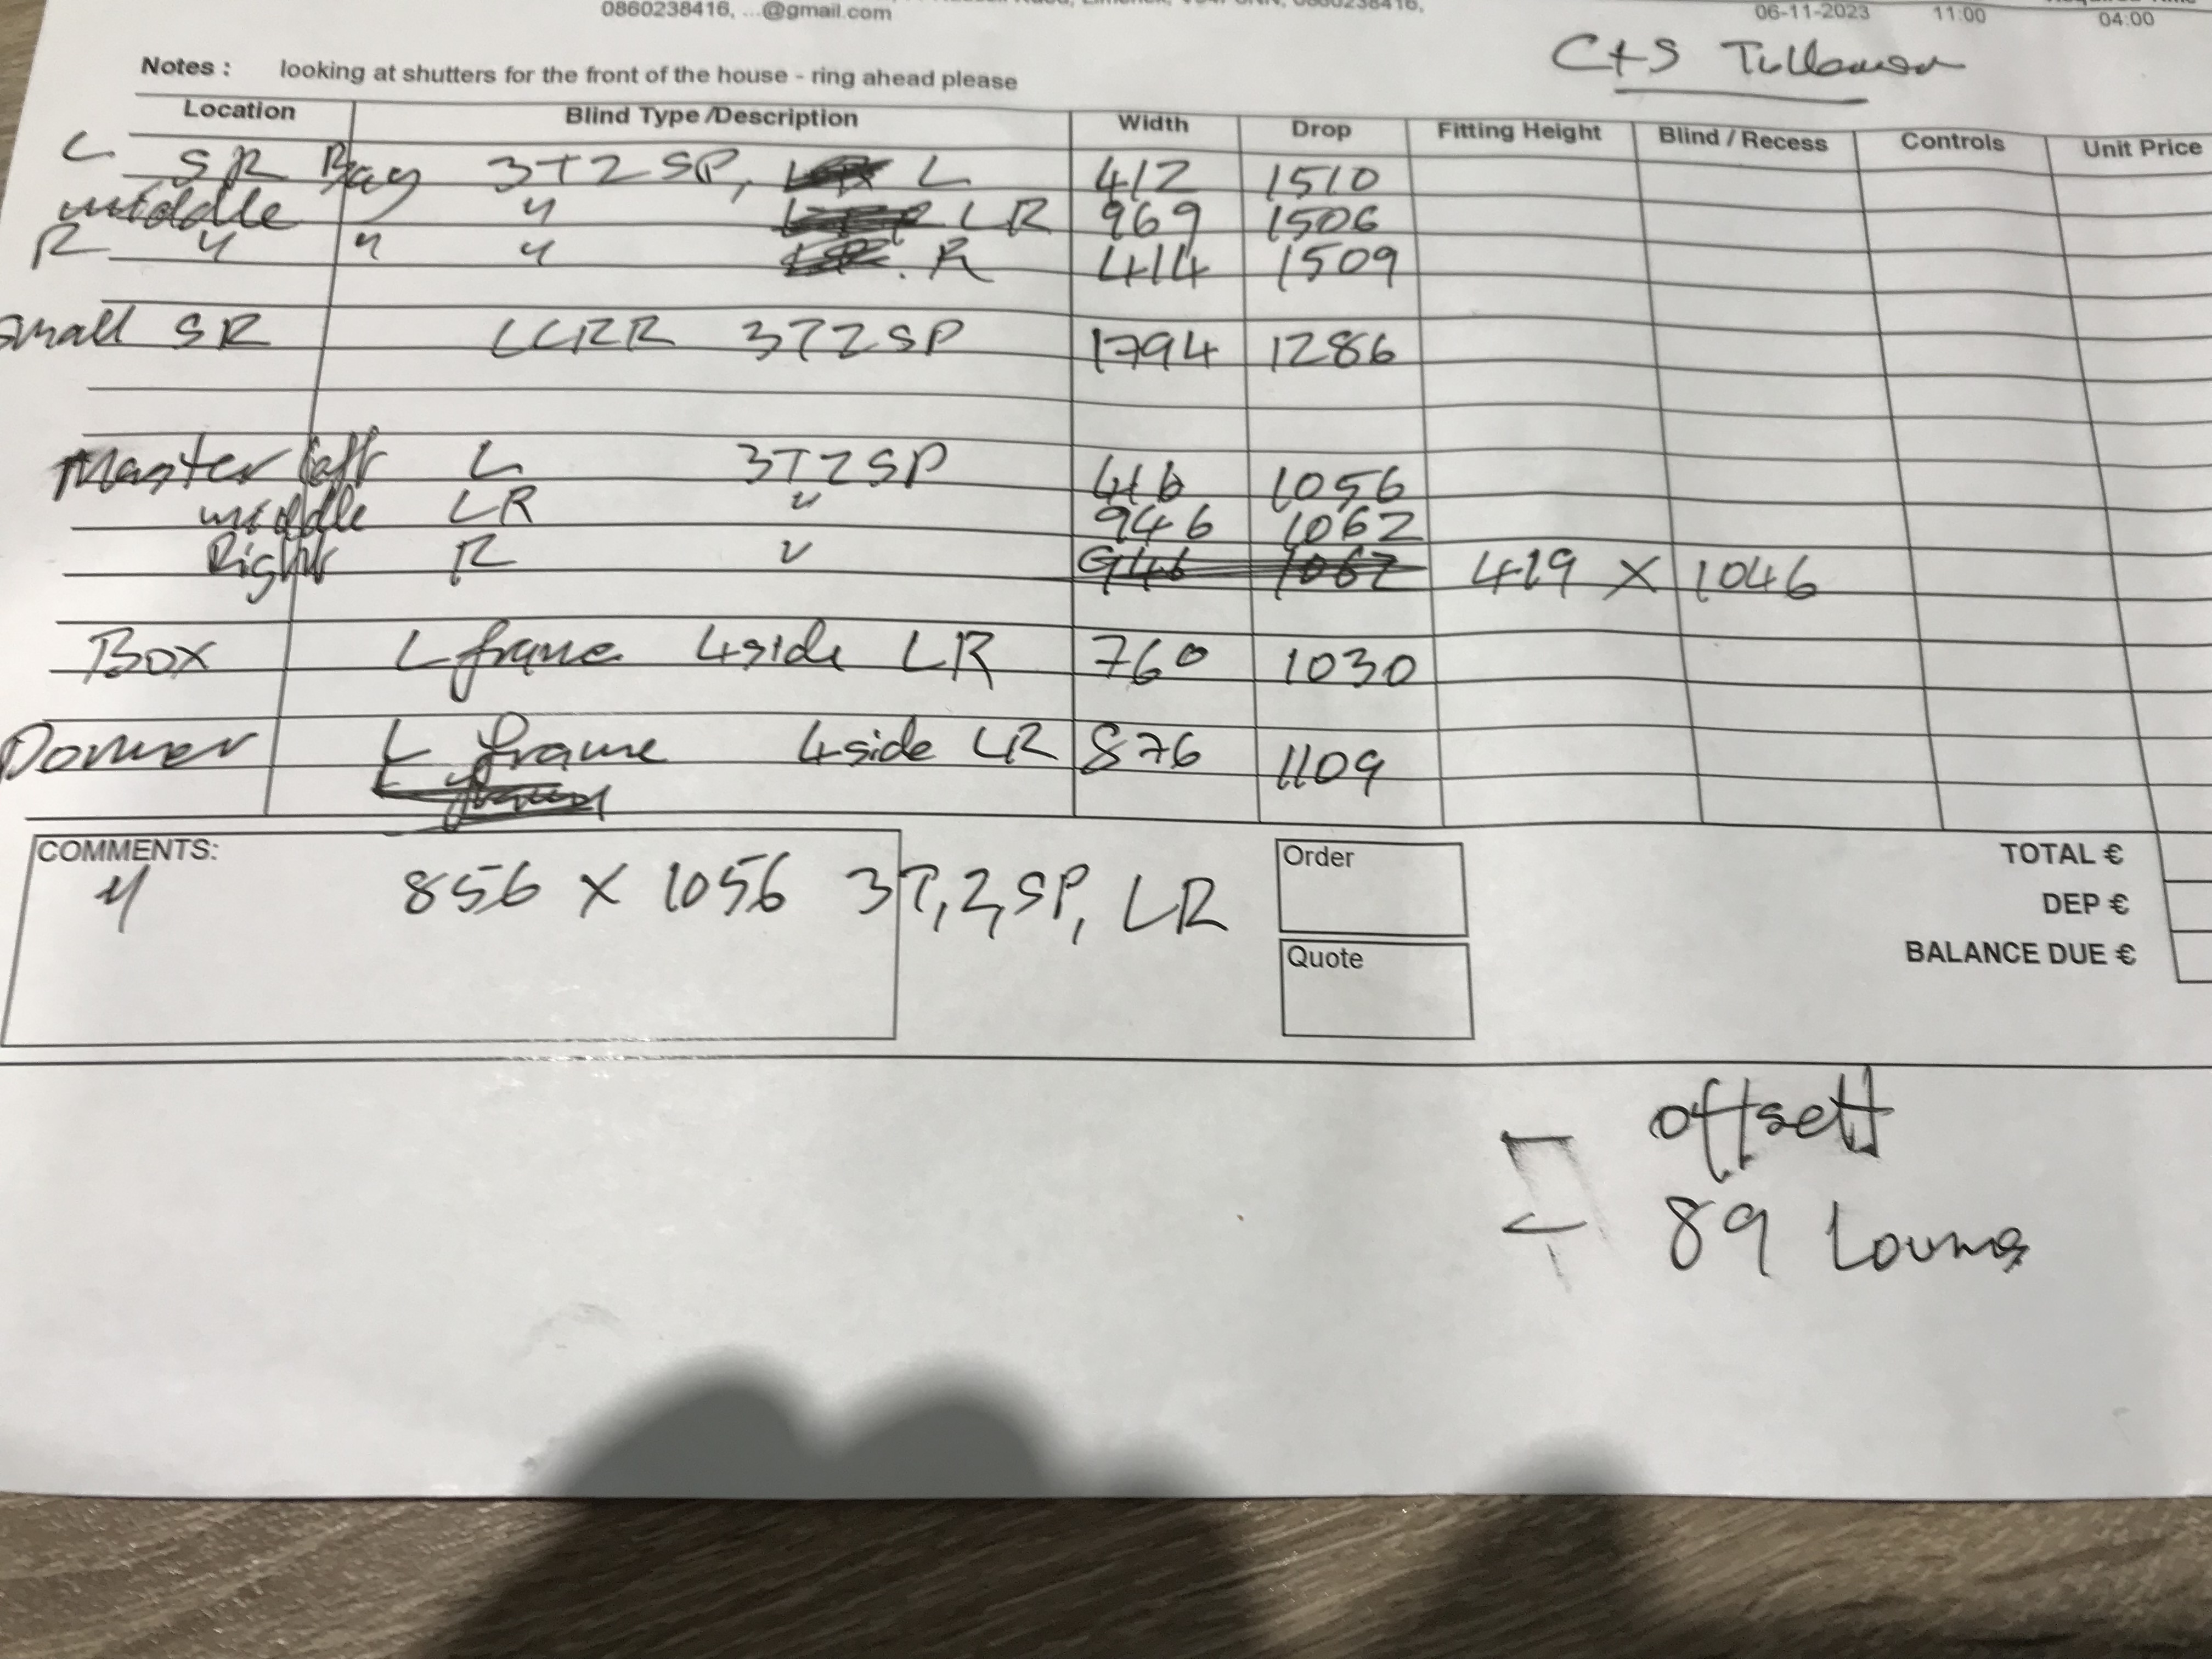 0860238416, ...@gmail.com
06-11-2023 11:00 04:00
C+S
Notes : looking at shutters for the front of the house - ring ahead please
Location Blind Type /Description Width Drop Fitting Height Blind / Recess Controls Unit Price
L SR Bay 3T2SP, L 412 1510
middle " LR 969 1506
R " " " R 414 1509
Small SR LLRR 3T2SP 1794 1286
Master left L 3T2SP 416 1056
middle LR " 946 1062
Right R " 946 1062 419 X 1046
Box L frame 4side LR 760 1030
Dormer L frame 4side LR 876 1109
L frame
COMMENTS:
" 856 X 1056 3T,2,SP, LR
Order
Quote
TOTAL €
DEP €
BALANCE DUE €
offsett
89 Louvre